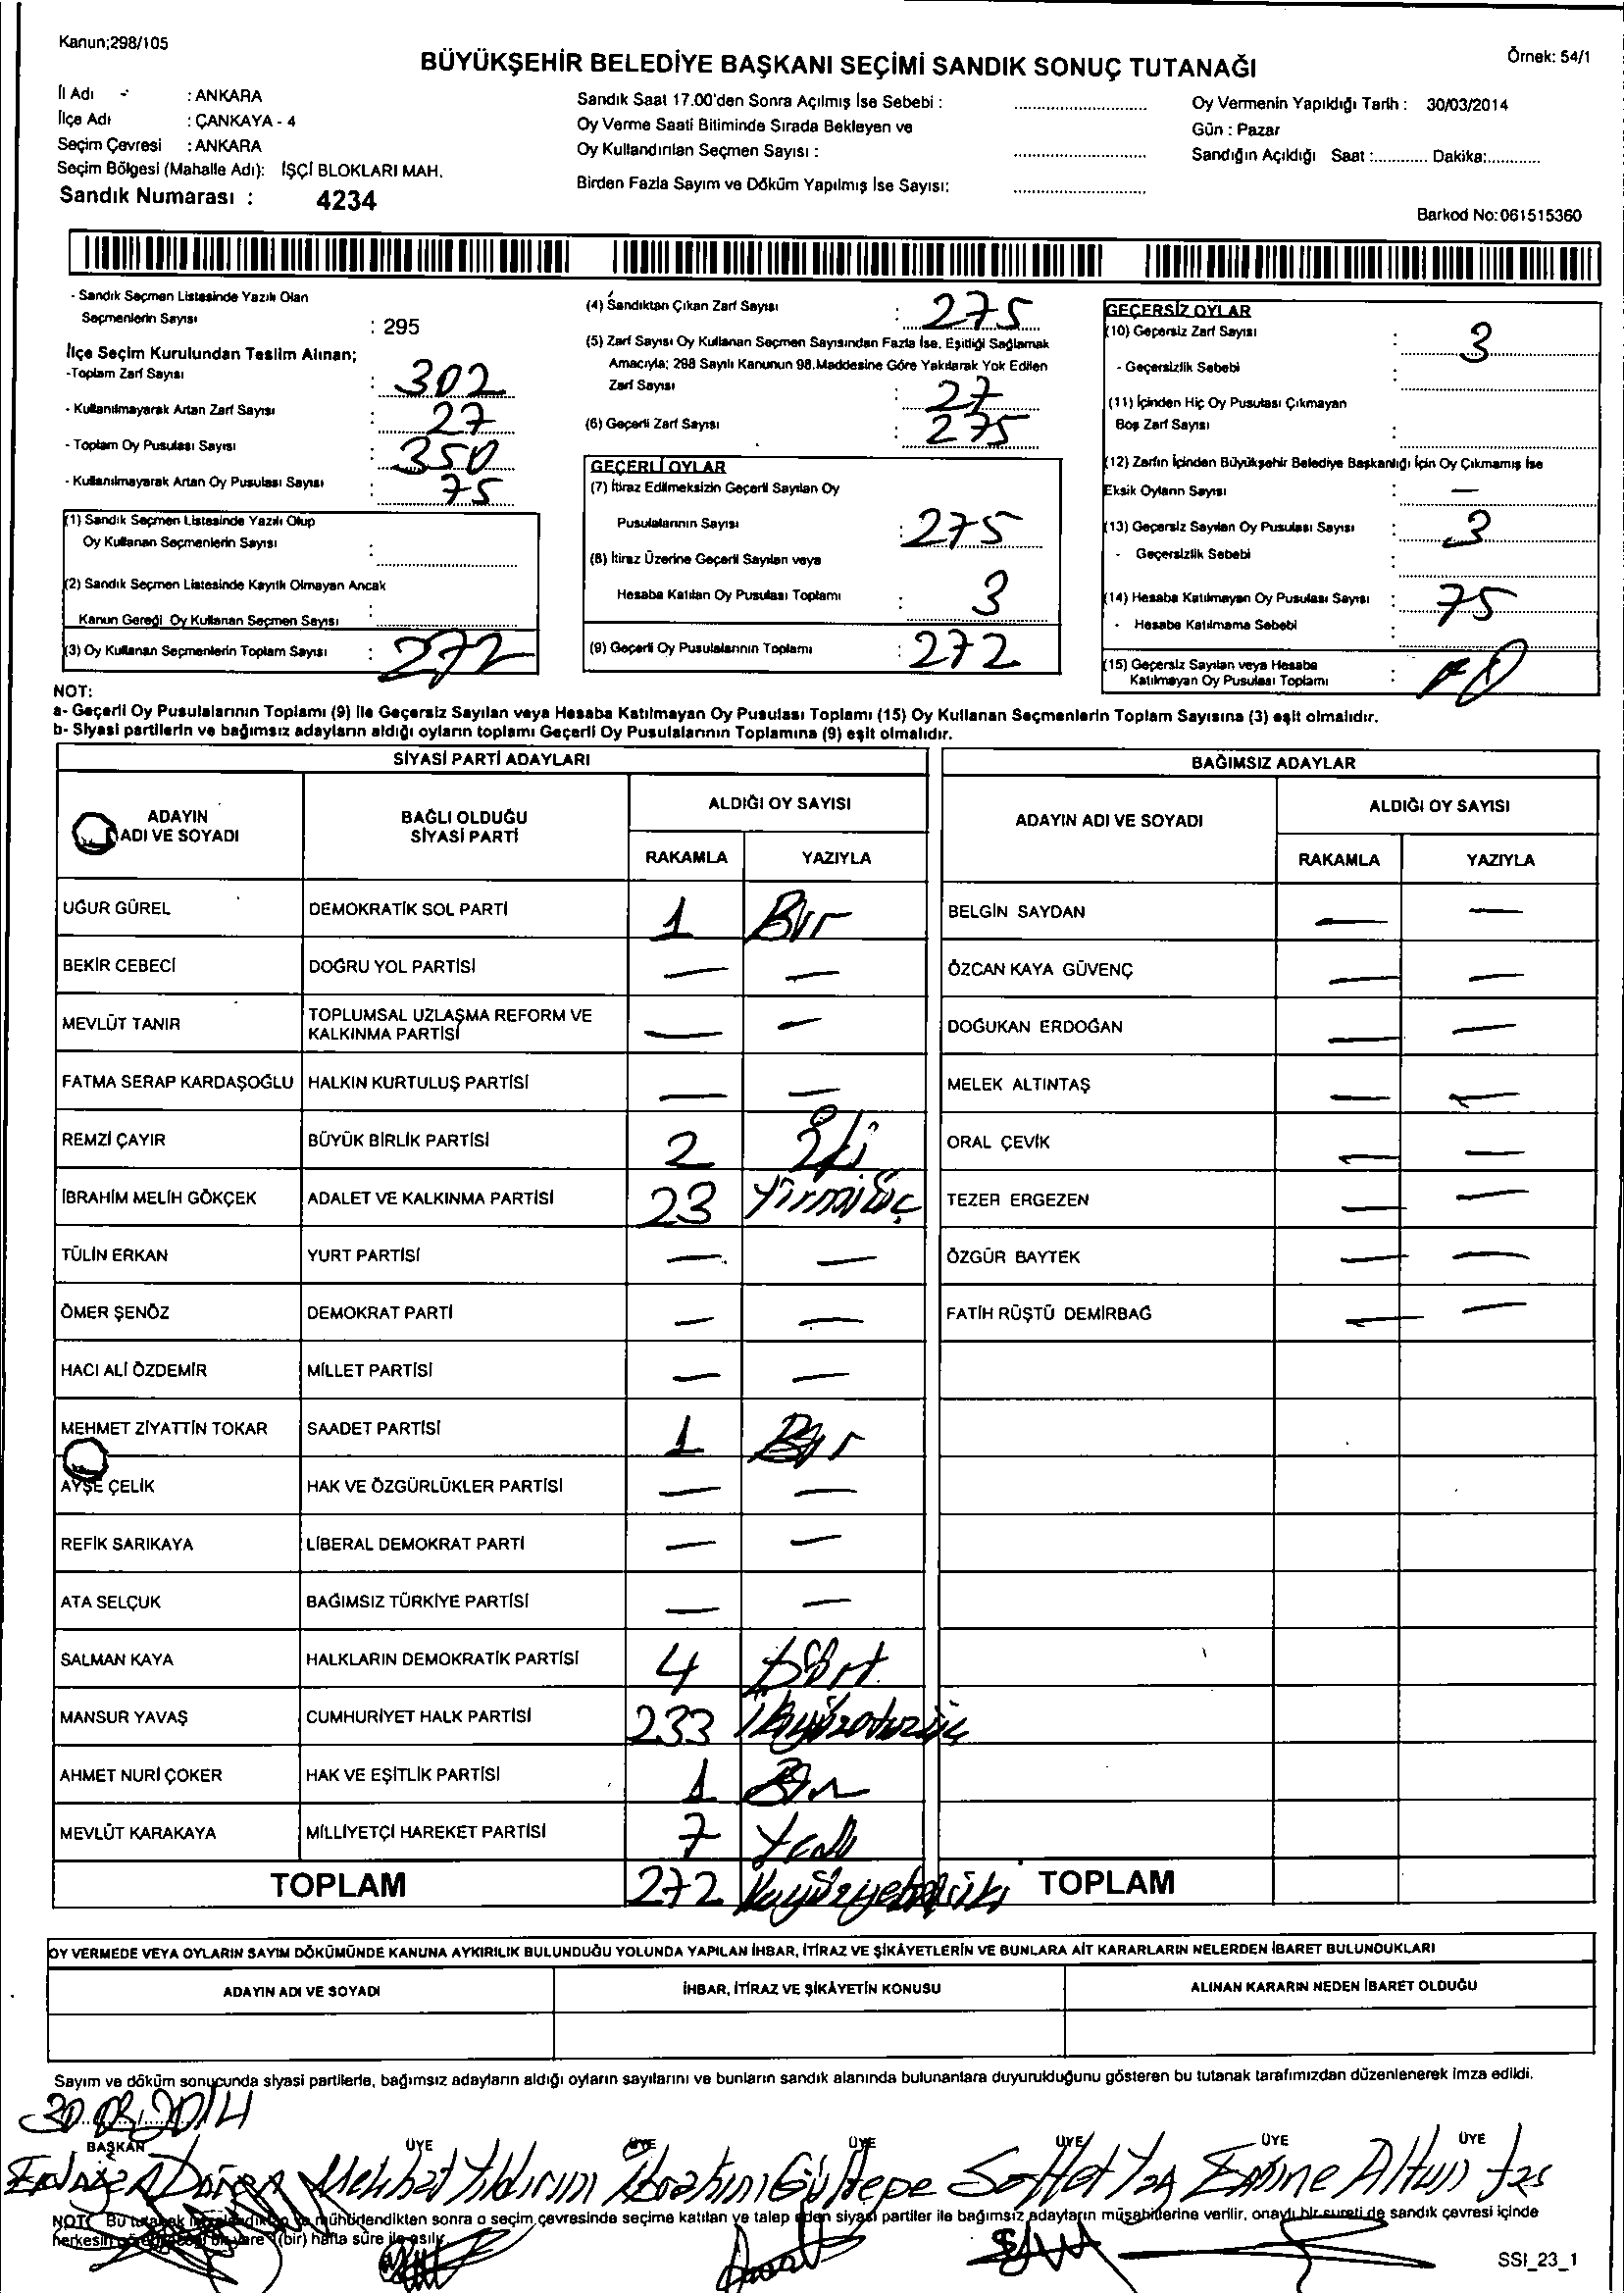 Kanun;298/105
Örnek: 54/1
BÜYÜKŞEHİR BELEDİYE BAŞKANI SEÇİMİ SANDIK SONUÇ TUTANAĞI
İl Adı : ANKARA
İlçe Adı : ÇANKAYA - 4
Seçim Çevresi : ANKARA
Seçim Bölgesi (Mahalle Adı): İŞÇİ BLOKLARI MAH.
Sandık Numarası : 4234
Sandık Saat 17.00'den Sonra Açılmış İse Sebebi :
Oy Verme Saati Bitiminde Sırada Bekleyen ve
Oy Kullandırılan Seçmen Sayısı :
Birden Fazla Sayım ve Döküm Yapılmış İse Sayısı:
Oy Vermenin Yapıldığı Tarih : 30/03/2014
Gün : Pazar
Sandığın Açıldığı Saat :............ Dakika:............
Barkod No:061515360
- Sandık Seçmen Listesinde Yazılı Olan
Seçmenlerin Sayısı : 295
İlçe Seçim Kurulundan Teslim Alınan;
-Toplam Zarf Sayısı : 302
- Kullanılmayarak Artan Zarf Sayısı : 27
- Toplam Oy Pusulası Sayısı : 350
- Kullanılmayarak Artan Oy Pusulası Sayısı : 75
(1) Sandık Seçmen Listesinde Yazılı Olup
Oy Kullanan Seçmenlerin Sayısı :
(2) Sandık Seçmen Listesinde Kayıtlı Olmayan Ancak
Kanun Gereği Oy Kullanan Seçmen Sayısı :
(3) Oy Kullanan Seçmenlerin Toplam Sayısı : 272
(4) Sandıktan Çıkan Zarf Sayısı : 275
(5) Zarf Sayısı Oy Kullanan Seçmen Sayısından Fazla İse, Eşitliği Sağlamak
Amacıyla; 298 Sayılı Kanunun 98.Maddesine Göre Yakılarak Yok Edilen
Zarf Sayısı : 27
(6) Geçerli Zarf Sayısı : 275
GEÇERLİ OYLAR
(7) İtiraz Edilmeksizin Geçerli Sayılan Oy
Pusulalarının Sayısı : 275
(8) İtiraz Üzerine Geçerli Sayılan veya
Hesaba Katılan Oy Pusulası Toplamı : 3
(9) Geçerli Oy Pusulalarının Toplamı : 272
GEÇERSİZ OYLAR
(10) Geçersiz Zarf Sayısı : 3
- Geçersizlik Sebebi :
(11) İçinden Hiç Oy Pusulası Çıkmayan
Boş Zarf Sayısı :
(12) Zarfın İçinden Büyükşehir Belediye Başkanlığı İçin Oy Çıkmamış İse
Eksik Oyların Sayısı : —
(13) Geçersiz Sayılan Oy Pusulası Sayısı : 3
- Geçersizlik Sebebi :
(14) Hesaba Katılmayan Oy Pusulası Sayısı : 75
- Hesaba Katılmama Sebebi :
(15) Geçersiz Sayılan veya Hesaba
Katılmayan Oy Pusulası Toplamı :
NOT:
a- Geçerli Oy Pusulalarının Toplamı (9) ile Geçersiz Sayılan veya Hesaba Katılmayan Oy Pusulası Toplamı (15) Oy Kullanan Seçmenlerin Toplam Sayısına (3) eşit olmalıdır.
b- Siyasi partilerin ve bağımsız adayların aldığı oyların toplamı Geçerli Oy Pusulalarının Toplamına (9) eşit olmalıdır.
SİYASİ PARTİ ADAYLARI
ADAYIN ADI VE SOYADI
BAĞLI OLDUĞU SİYASİ PARTİ
ALDIĞI OY SAYISI
RAKAMLA YAZIYLA
UĞUR GÜREL DEMOKRATİK SOL PARTİ 1 Bir
BEKİR CEBECİ DOĞRU YOL PARTİSİ — —
MEVLÜT TANIR TOPLUMSAL UZLAŞMA REFORM VE KALKINMA PARTİSİ — —
FATMA SERAP KARDAŞOĞLU HALKIN KURTULUŞ PARTİSİ — —
REMZİ ÇAYIR BÜYÜK BİRLİK PARTİSİ 2 İki
İBRAHİM MELİH GÖKÇEK ADALET VE KALKINMA PARTİSİ 23 Yirmiüç
TÜLİN ERKAN YURT PARTİSİ — —
ÖMER ŞENÖZ DEMOKRAT PARTİ — —
HACI ALİ ÖZDEMİR MİLLET PARTİSİ — —
MEHMET ZİYATTİN TOKAR SAADET PARTİSİ 1 Bir
AYŞE ÇELİK HAK VE ÖZGÜRLÜKLER PARTİSİ — —
REFİK SARIKAYA LİBERAL DEMOKRAT PARTİ — —
ATA SELÇUK BAĞIMSIZ TÜRKİYE PARTİSİ — —
SALMAN KAYA HALKLARIN DEMOKRATİK PARTİSİ 4 Dört
MANSUR YAVAŞ CUMHURİYET HALK PARTİSİ 233 İkiyüzotuzüç
AHMET NURİ ÇOKER HAK VE EŞİTLİK PARTİSİ 1 Bir
MEVLÜT KARAKAYA MİLLİYETÇİ HAREKET PARTİSİ 7 Yedi
TOPLAM 272 İkiyüzyetmişiki
BAĞIMSIZ ADAYLAR
ADAYIN ADI VE SOYADI
ALDIĞI OY SAYISI
RAKAMLA YAZIYLA
BELGİN SAYDAN — —
ÖZCAN KAYA GÜVENÇ — —
DOĞUKAN ERDOĞAN — —
MELEK ALTINTAŞ — —
ORAL ÇEVİK — —
TEZER ERGEZEN — —
ÖZGÜR BAYTEK — —
FATİH RÜŞTÜ DEMİRBAĞ — —
TOPLAM
OY VERMEDE VEYA OYLARIN SAYIM DÖKÜMÜNDE KANUNA AYKIRILIK BULUNDUĞU YOLUNDA YAPILAN İHBAR, İTİRAZ VE ŞİKÂYETLERİN VE BUNLARA AİT KARARLARIN NELERDEN İBARET BULUNDUKLARI
ADAYIN ADI VE SOYADI
İHBAR, İTİRAZ VE ŞİKÂYETİN KONUSU
ALINAN KARARIN NEDEN İBARET OLDUĞU
Sayım ve döküm sonucunda siyasi partilerle, bağımsız adayların aldığı oyların sayılarını ve bunların sandık alanında bulunanlara duyurulduğunu gösteren bu tutanak tarafımızdan düzenlenerek imza edildi.
30.03.2014
BAŞKAN ÜYE ÜYE ÜYE ÜYE ÜYE ÜYE
Yıldırım İbrahim Gültepe Emine Altun
NOT: Bu tutanak mühürlendikten sonra o seçim çevresinde seçime katılan ve talep eden siyasi partiler ile bağımsız adayların müşahitlerine verilir, onaylı bir sureti de sandık çevresi içinde
herkesin bir yere 1(bir) hafta süre ile asılır.
SSI_23_1